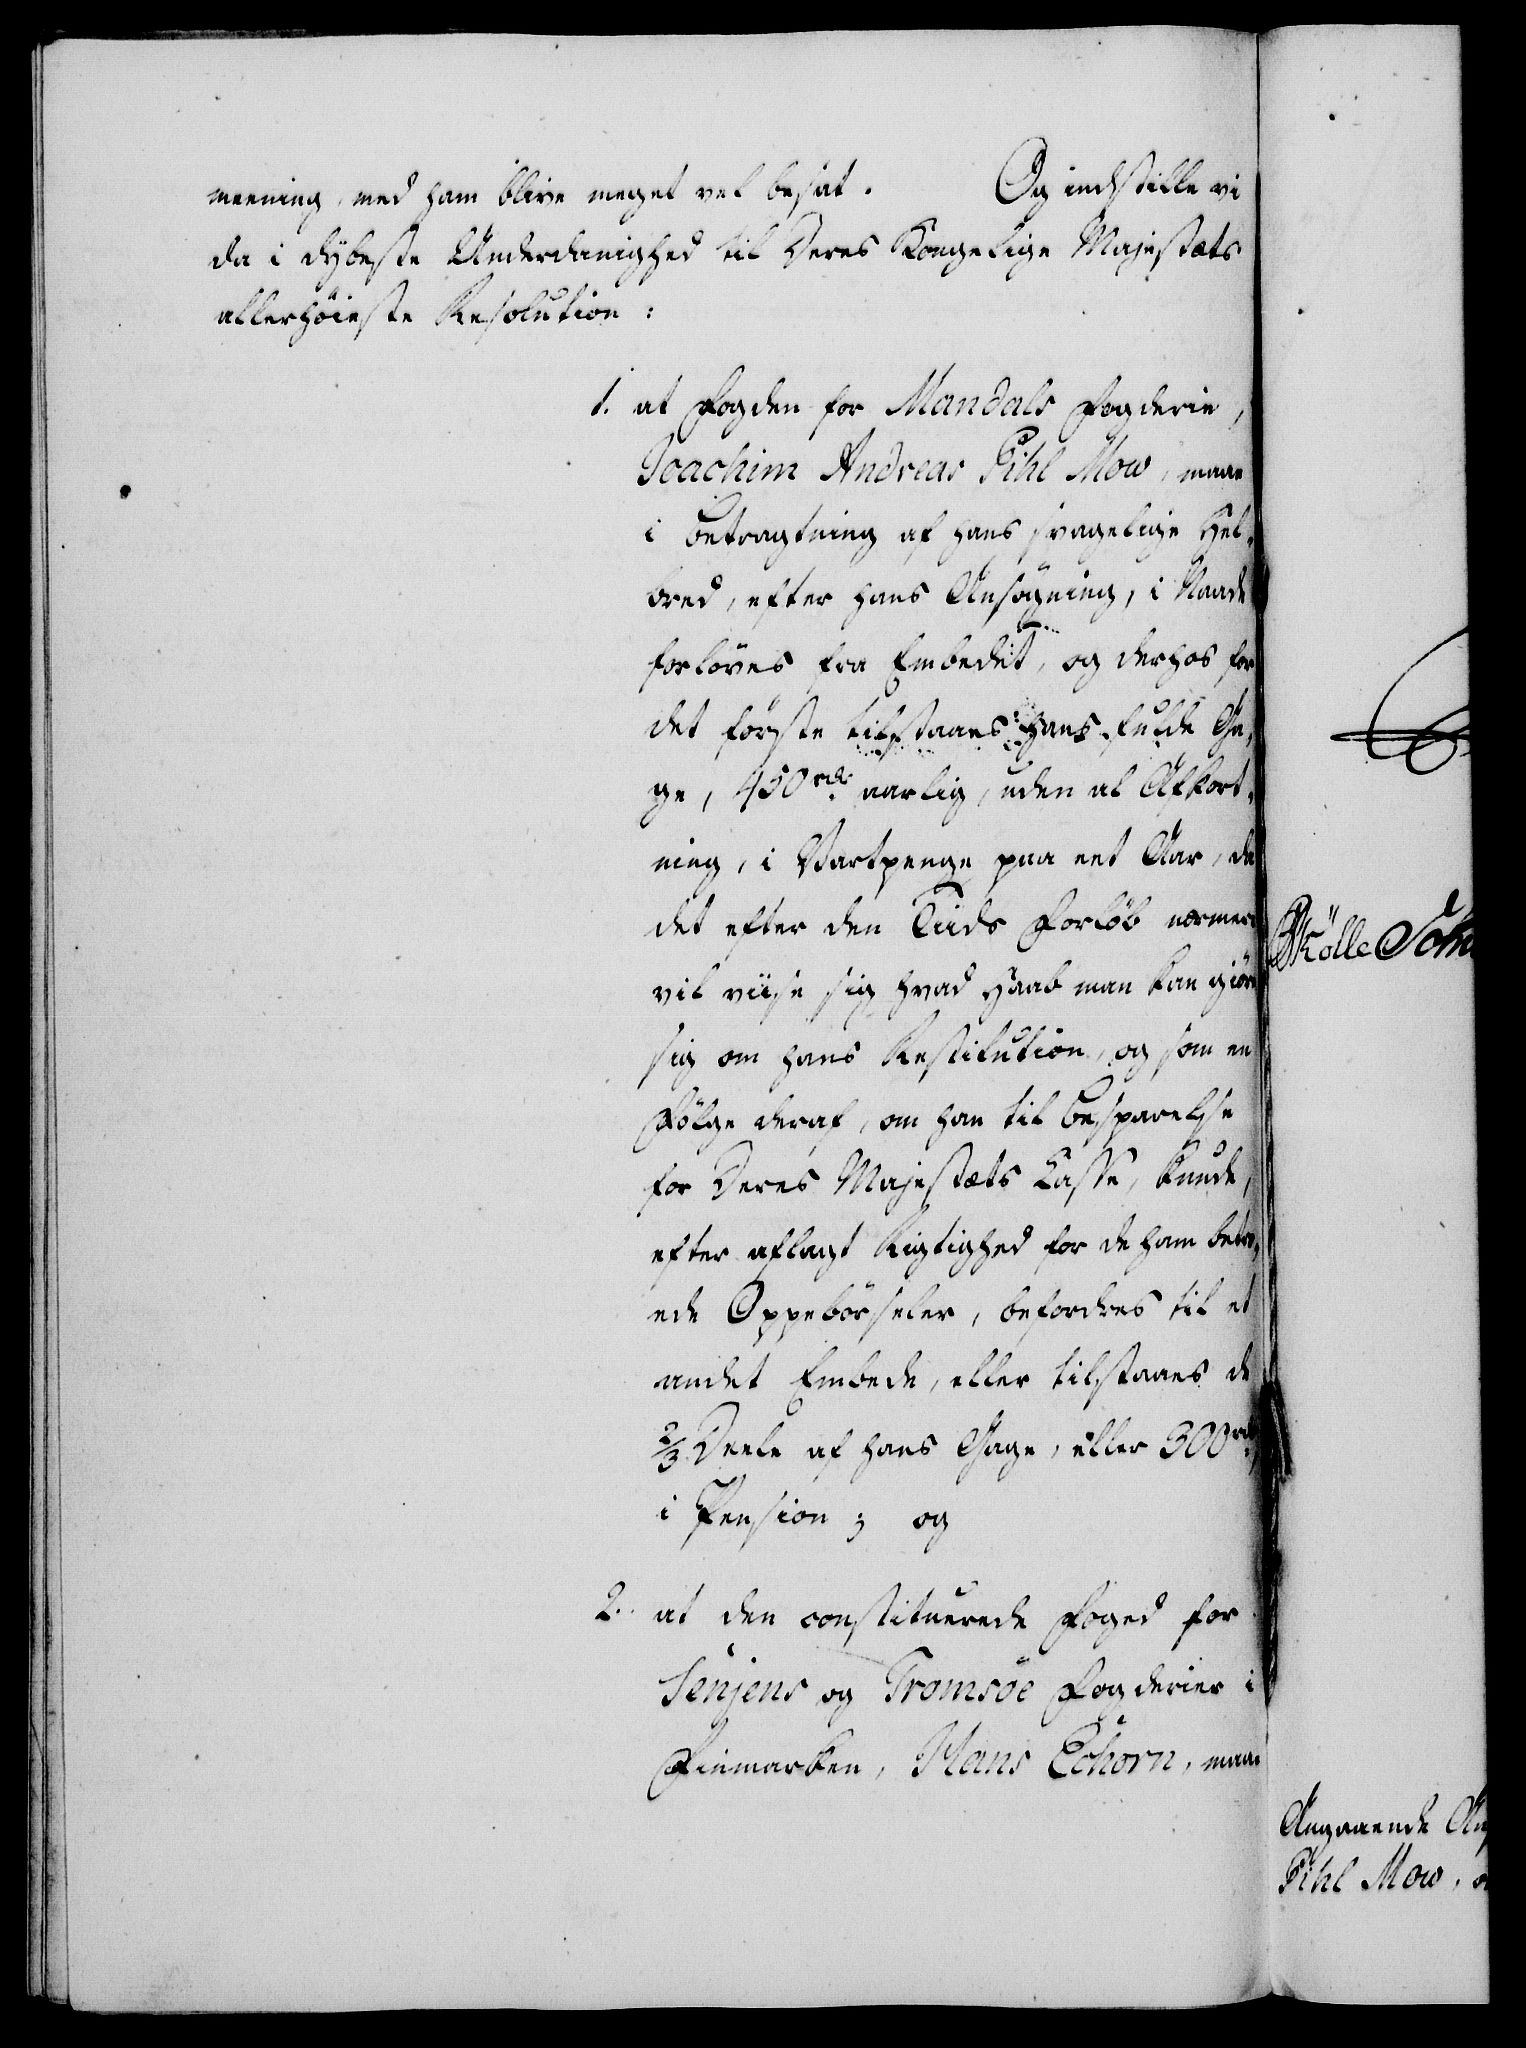 meening, med ham blive meget vel besat. Og indstille vi
da i dybeste Underdanighed til Deres Kongelige Majestæts
allerhöieste Resolution:
1. at Fogden for Mandals Fogderie,
Joachim Andreas Pihl Mow, maae
i Betragtning af hans svagelige Hel-
bred, efter hans Ansögning, i Naade
forlöves fra Embedet, og derhos for
det förste tilstaaes hans fulde Ga-
ge, 450 rdr. aarlig, uden al Afkort-
ning, i Vartpenge paa eet Aar, da
det efter den Tiids Forlöb nærmere
vil viise sig hvad Haab man kan giöre
sig om hans Restitution, og som en
Fölge deraf, om han til Besparelse
for Deres Majestæts Casse, kunde,
efter aflagt Rigtighed for de ham betro-
ede Oppebörseler, befordres til et
andet Embede, eller tilstaaes de
2/3 Deele af hans Gage, eller 300 rdr.
i Pension; og
2. at den constituerede Foged for
Senjens og Tromsöe Fogderier i
Finmarken, Hans Echorn, maae
Skölle
Angaaende
Pihl Mow,